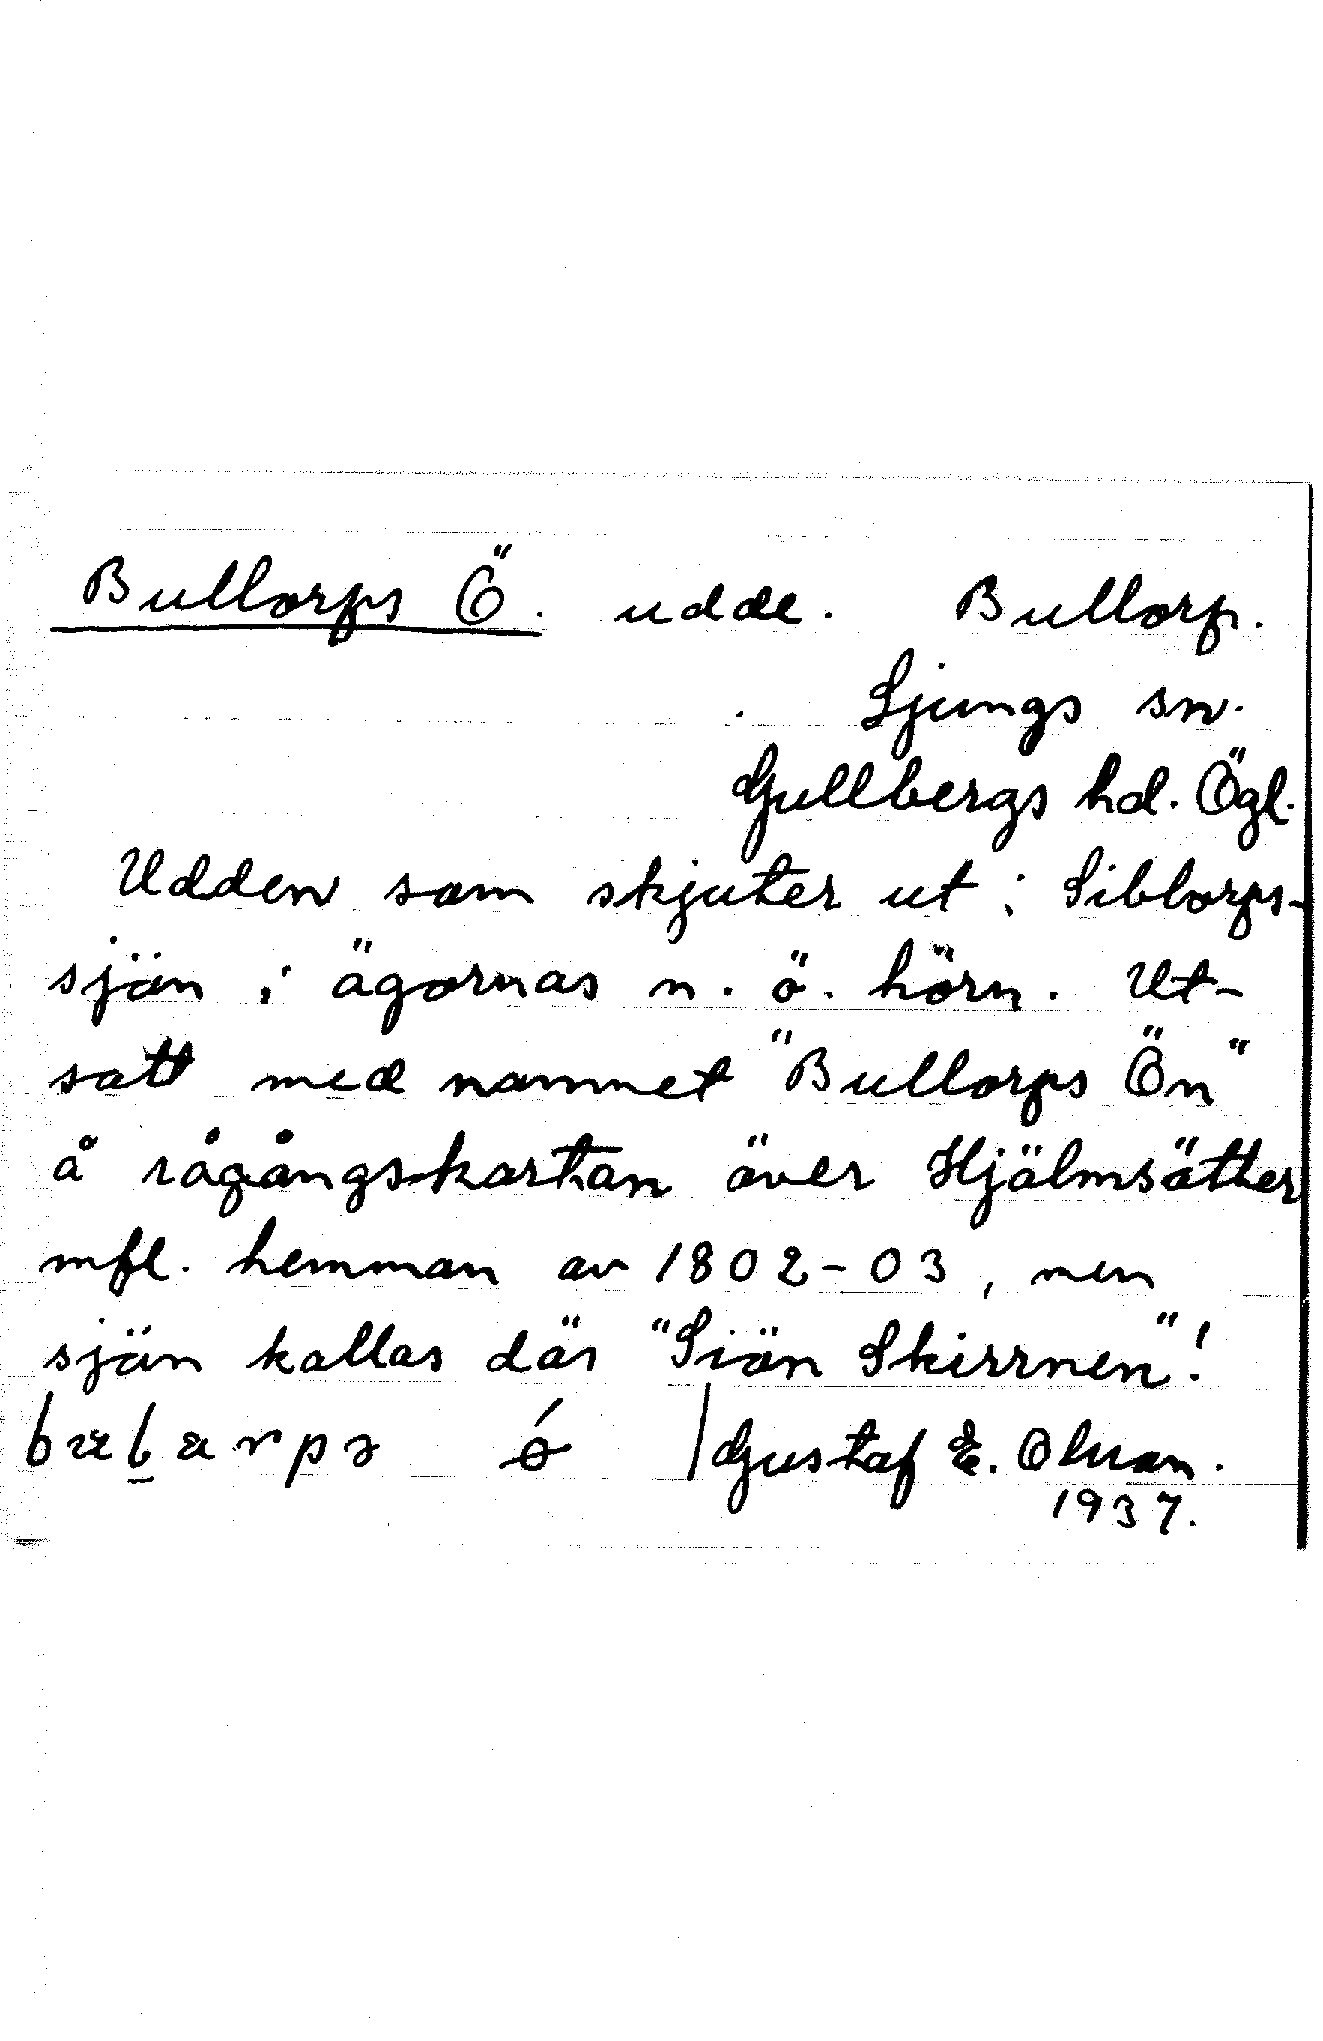 Bullorps Ö. udde. Bullorp.
Ljungs sn.
Gullbergs hd. Ögl.
Udden som skjuter ut i Siblorps-
sjön i ägornas n. ö. hörn. Ut-
satt med namnet "Bullorps Ön"
å rågångskartan över Hjälmsätter
mfl. hemman av 1802-03, men
sjön kallas där "Siön Skirrnen"!
Gustaf E. Olsson.
1937.